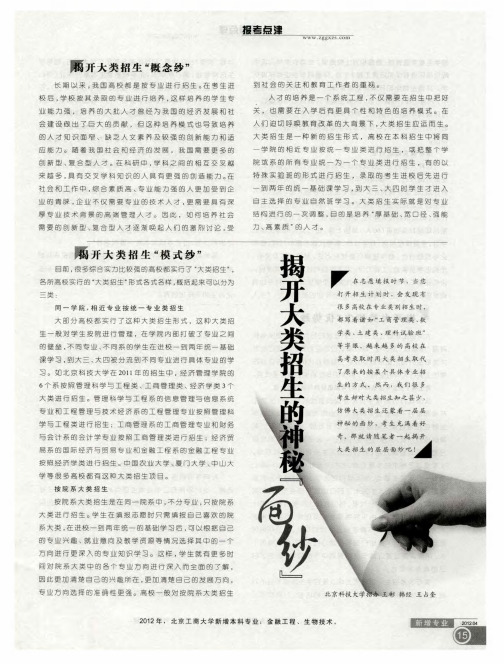 报考点津
www.zggxzs.com
揭开大类招生“概念纱”
长期以来,我国高校都是按专业进行招生。在考生进
校后,学校按其录取的专业进行培养,这样培养的学生专
业能力强。培养的大批人才曾经为我国的经济发展和社
会建设做出了巨大的贡献。但这种培养模式也导致培养
的人才知识面窄、缺乏人文素养及较强的创新能力和适
应能力。随着我国社会和经济的发展,我国需要更多的
创新型、复合型人才。在科研中,学科之间的相互交叉越
来越多,具有交叉学科知识的人具有更强的创造能力。在
社会和工作中,综合素质高、专业能力强的人更加受到企
业的青睐。企业不仅需要专业的技术人才,更需要具有深
厚专业技术背景的高端管理人才。因此,如何培养社会
需要的创新型、复合型人才逐渐唤起人们的激烈讨论,受
到社会的关注和教育工作者的重视。
人才的培养是一个系统工程,不仅需要在招生中把好
关,也需要在入学后有更具个性和特色的培养模式。在
人们迫切盼望教育改革的大背景下,大类招生应运而生。
大类招生是一种新的招生形式,高校在本科招生中将同
一学院的相近专业按统一专业类进行招生,或把整个学
院或系的所有专业统一为一个专业类进行招生,有的以
特殊实验班的形式进行招生,录取的考生进校后先进行
一到两年的统一基础课学习,到大三、大四时学生才进入
自主选择的专业自然班学习。大类招生实际就是对专业
结构进行的一次调整,目的是培养“厚基础、宽口径、强能
力、高素质”的人才。
揭开大类招生“模式纱”
目前,很多综合实力比较强的高校都实行了“大类招生”,
各所高校实行的“大类招生”形式各式各样,概括起来可以分为
三类:
同一学院,相近专业按统一专业类招生
大部分高校都实行了这种大类招生形式,这种大类招
生一般对学生按院进行管理,在学院内部打破了专业之间
的壁垒,不同专业、不同系的学生在进校一到两年统一基础
课学习,到大三、大四被分流到不同专业进行具体专业的学
习。如北京科技大学在2011年的招生中,经济管理学院的
6个系按照管理科学与工程类、工商管理类、经济学类3个
大类进行招生。管理科学与工程系的信息管理与信息系统
专业和工程管理与技术经济系的工程管理专业按照管理科
学与工程类进行招生;工商管理系的工商管理专业和财务
与会计系的会计学专业按照工商管理类进行招生;经济贸
易系的国际经济与贸易专业和金融工程系的金融工程专业
按照经济学类进行招生。中国农业大学、厦门大学、中山大
学等很多高校都有这种大类招生项目。
按院系大类招生
按院系大类招生是在同一院系中,不分专业,只按院系
大类进行招生。学生在填报志愿时只需填报自己喜欢的院
系大类,在进校一到两年统一的基础学习后,可以根据自己
的专业兴趣、就业意向及教学资源等情况选择其中的一个
方向进行更深入的专业知识学习。这样,学生就有更多时
间对院系大类中的各个专业方向进行深入而全面的了解,
因此更加清楚自己的兴趣所在,更加清楚自己的发展方向,
专业方向选择的准确性更强。高校一般对按院系大类招生
揭开大类招生的神秘『面纱』
在志愿填报时节,当您
打开招生计划时,会发现有
很多高校在专业类别招生时,
都写着诸如“工商管理类、数
学类、土建类、理科试验班”
等字眼。越来越多的高校在
高考录取时用大类招生取代
了原来的按某个具体专业招
生的方式。然而,我们很多
考生却对大类招生知之甚少,
仿佛大类招生还蒙着一层层
神秘的面纱。考生充满着好
奇,那就请随笔者一起揭开
大类招生的层层面纱吧!
北京科技大学招办 王彬 韩经 王占奎
2012年,北京工商大学新增本科专业:金融工程、生物技术。
新增专业
2012.04
15